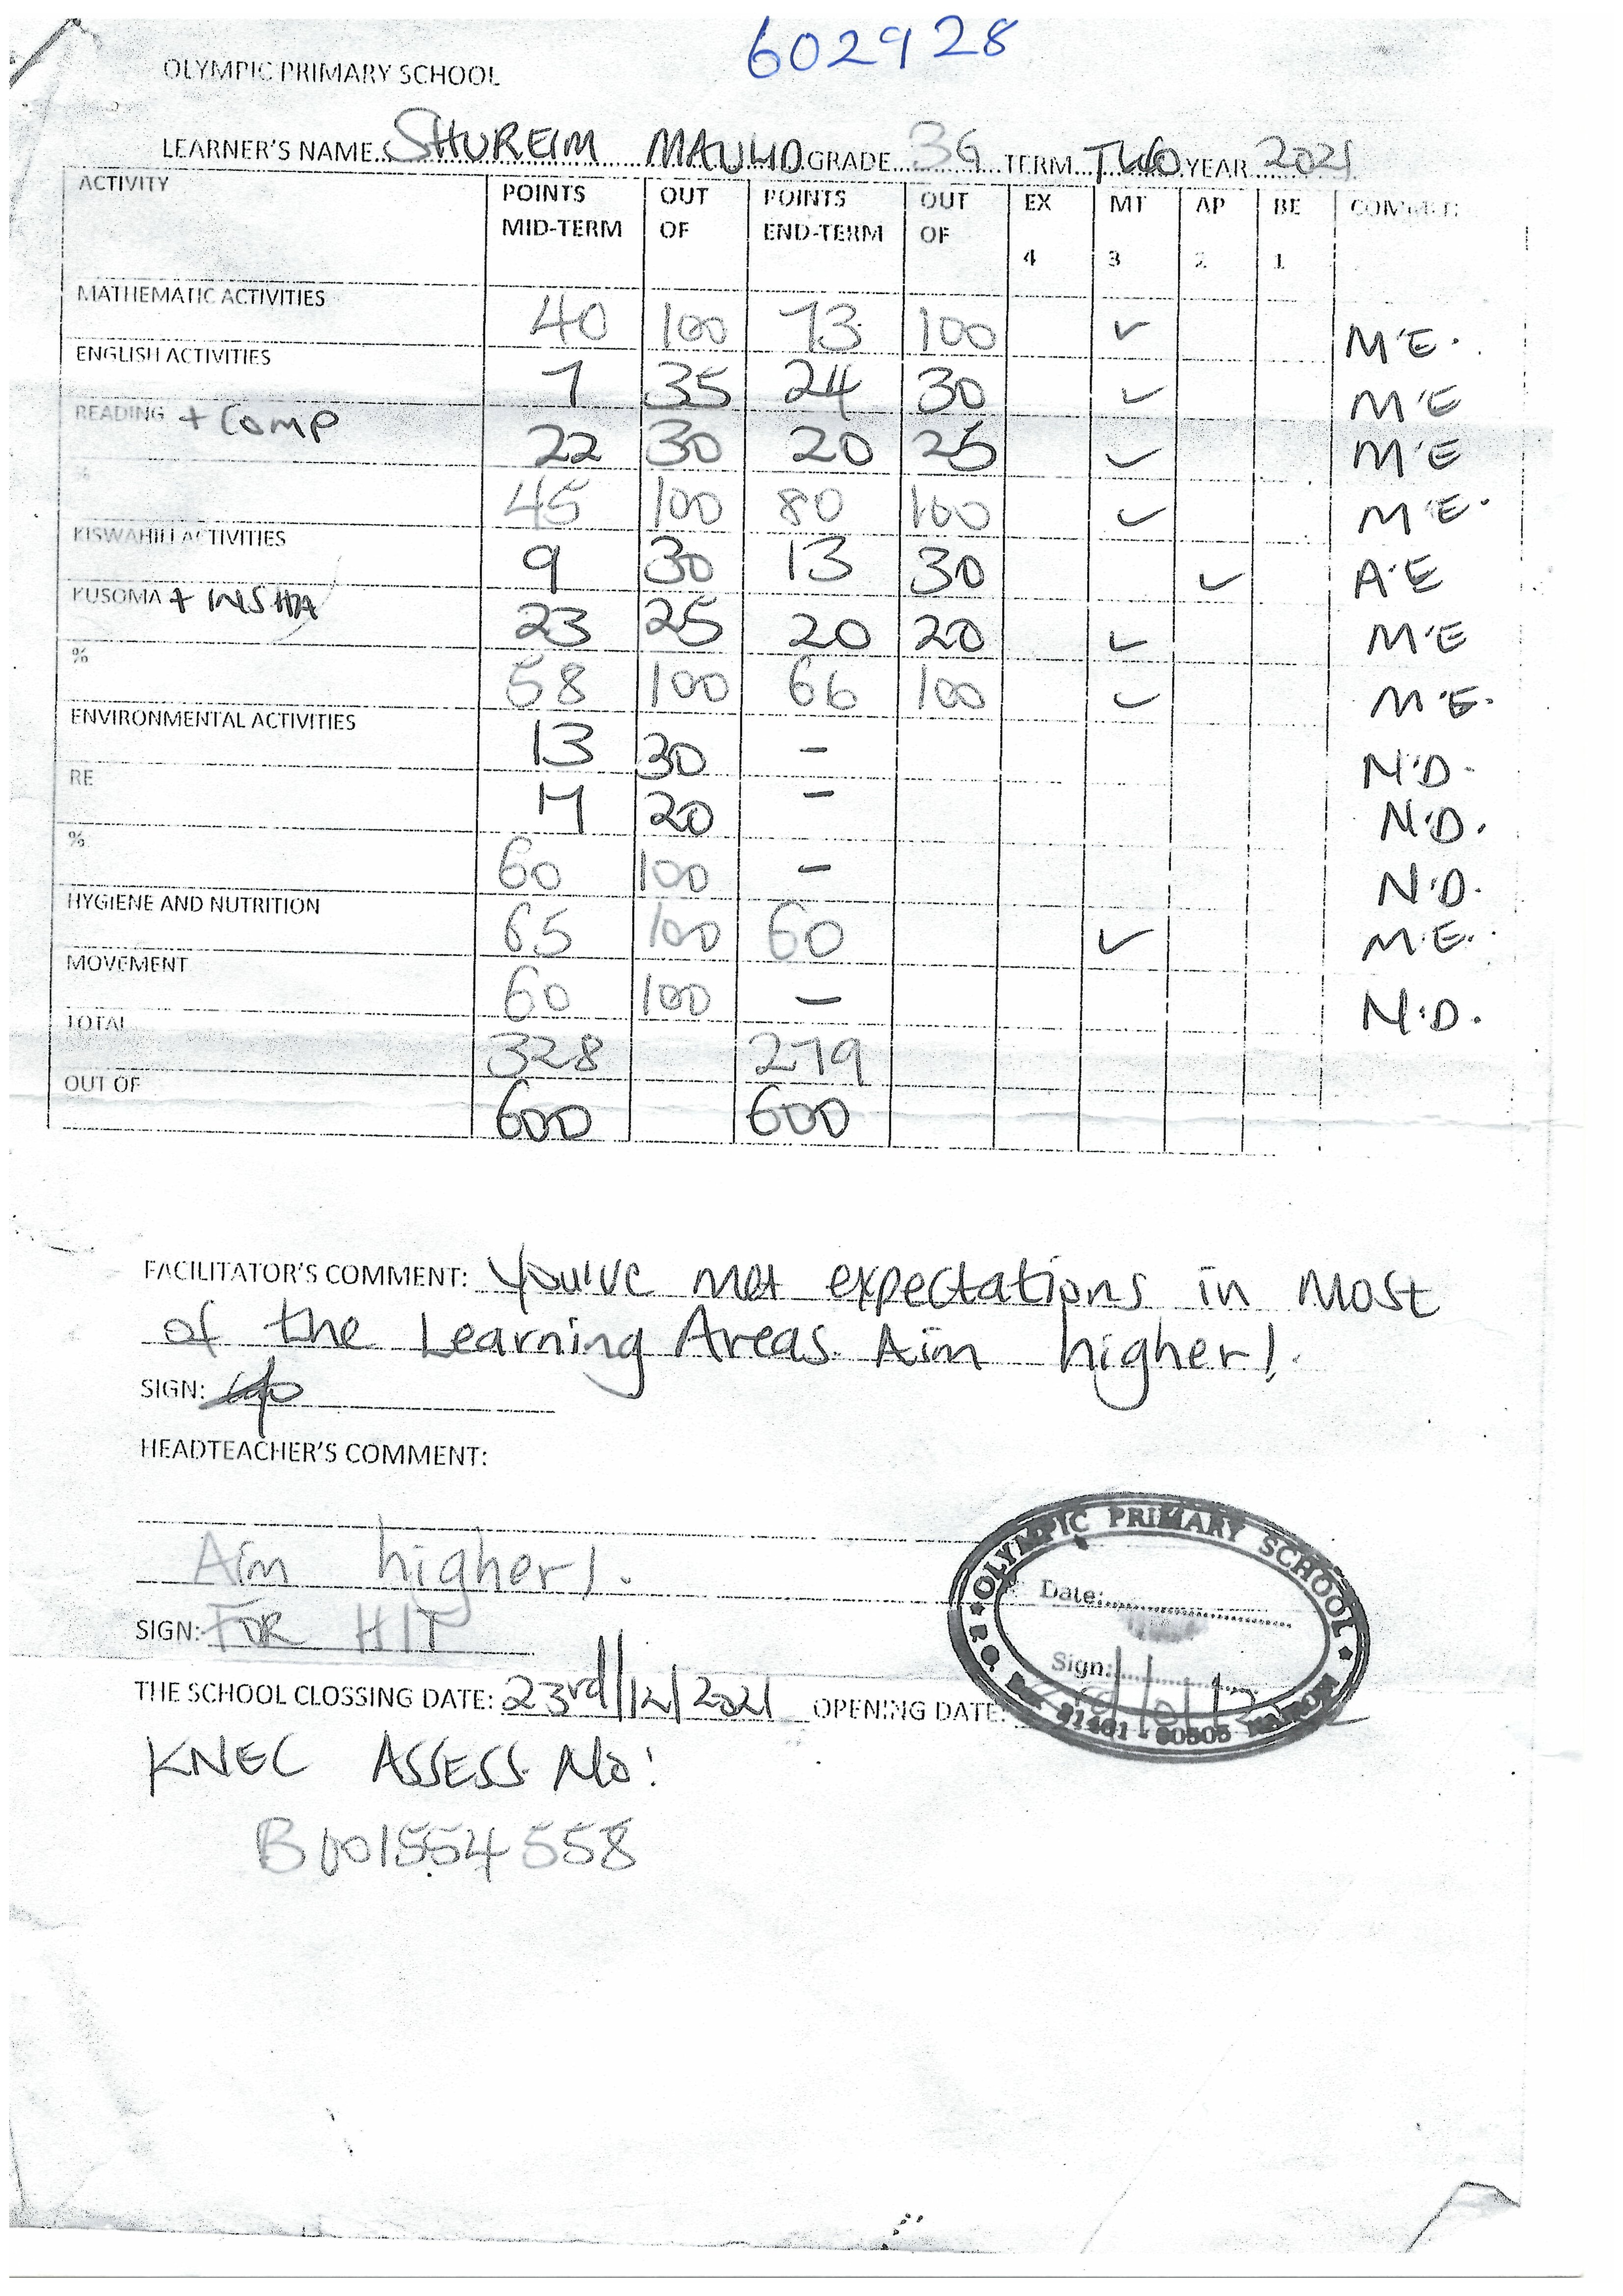 602928
OLYMPIC PRIMARY SCHOOL
LEARNER'S NAME SHUREIM MAULID GRADE 3G TERM TWO YEAR 2021
ACTIVITY POINTS MID-TERM OUT OF POINTS END-TERM OUT OF EX 4 MT 3 AP 2 BE 1
MATHEMATIC ACTIVITIES 40 100 73 100 ✓ M'E.
ENGLISH ACTIVITIES 7 35 24 30 ✓ M'E
READING + COMP 22 30 20 25 ✓ M'E
% 45 100 80 100 ✓ M'E.
KISWAHILI ACTIVITIES 9 30 13 30 ✓ A'E
KUSOMA + INSHA 23 25 20 20 ✓ M'E
% 58 100 66 100 ✓ M'E.
ENVIRONMENTAL ACTIVITIES 13 30 - N'D.
RE 20 - N.D.
% 60 100 - N.D.
HYGIENE AND NUTRITION 65 100 60 ✓ M.E.
MOVEMENT 60 100 - N.D.
TOTAL 328 279
OUT OF 600 600
FACILITATOR'S COMMENT: You've met expectations in most
of the Learning Areas. Aim higher!.
SIGN:
HEADTEACHER'S COMMENT:
Aim higher!.
SIGN: FOR H/T
THE SCHOOL CLOSSING DATE: 23rd/12/2021 OPENING DATE:
OLYMPIC PRIMARY SCHOOL
Date:
Sign:
KNEC ASSESS No:
B001554558